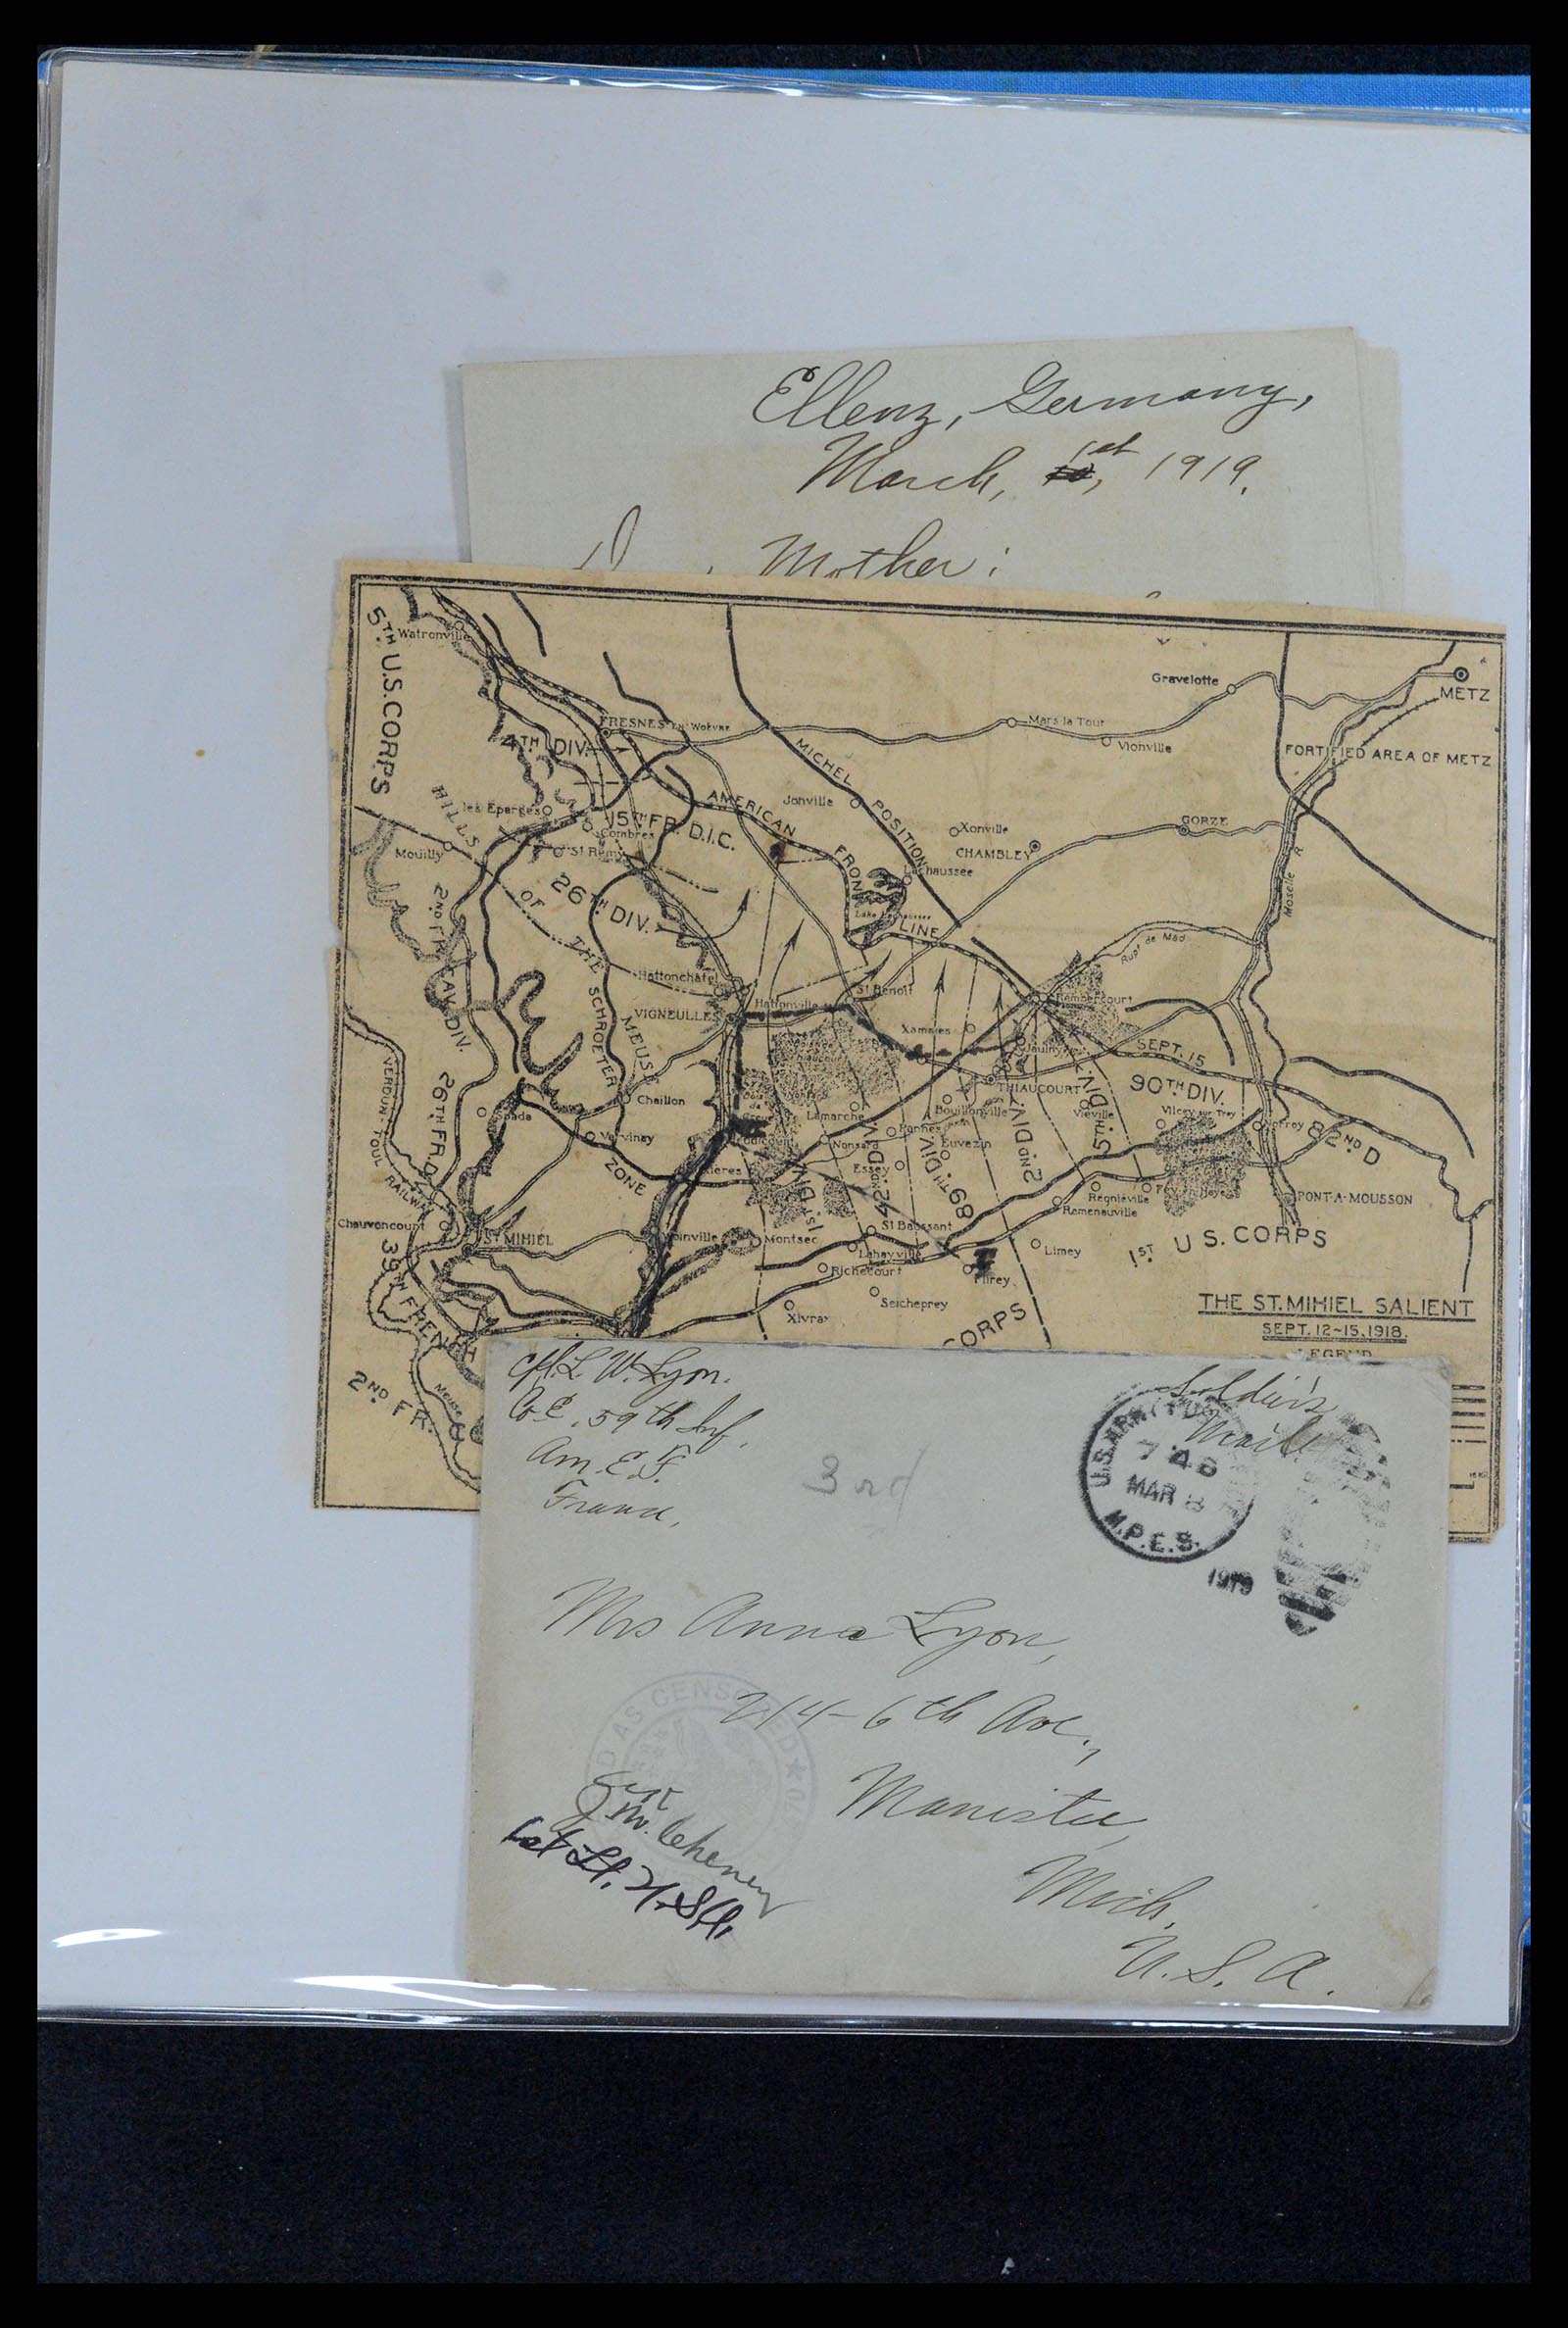 Ellenz, Germany,
March, 1st, 1919.
Mother:
5TH U.S. CORPS
Watronville
Gravelotte
METZ
FRESNES-EN-Woevre
Mars la Tour
Vionville
4TH DIV.
MICHEL POSITION
FORTIFIED AREA OF METZ
HILLS OF THE MEUSE
les Eparges
15TH FR. D.I.C.
Combres
AMERICAN FRONT LINE
Jonville
Xonville
GORZE
CHAMBLEY
Mouilly
St Remy
Lachaussee
26TH DIV.
Moselle R.
2ND FR. CAV. DIV.
Rupt de Mad
Hattonchatel
SCHROETER ZONE
St Benoit
Rembercourt
VIGNEULLES
Hattonville
Xammes
Jaulny
SEPT. 15
VERDUN TOUL RAILWAY
26TH FR. D
THIAUCOURT
90TH DIV.
Chaillon
Spada
Lamarche
Bouillonville
Vieville
Vilcey sur Trey
5TH DIV.
82ND D
Varvinay
Nonsard
Pannes
Euvezin
2ND DIV.
Essey
1ST DIV.
42ND DIV.
89TH DIV.
Regnieville
Remenauville
PONT-A-MOUSSON
Chauvoncourt
ST MIHIEL
Montsec
St Baussant
Lahayville
Limey
1ST U.S. CORPS
39TH FRENCH
Richecourt
Flirey
Seicheprey
Xivray
THE ST. MIHIEL SALIENT
SEPT. 12-15, 1918.
LEGEND
CORPS
2ND FR.
Meuse
Cpl. L. W. Lyon.
Co. E, 59th Inf.
Am. E. F.
France,
3rd
Soldier's
Mail
748
MAR 8
M.P.E.S.
1919
Mrs Anna Lyon,
214-6th Ave.,
Manistee,
Mich.
U.S.A.
AS CENSORED
Cheney
1st Lt. U.S.A.